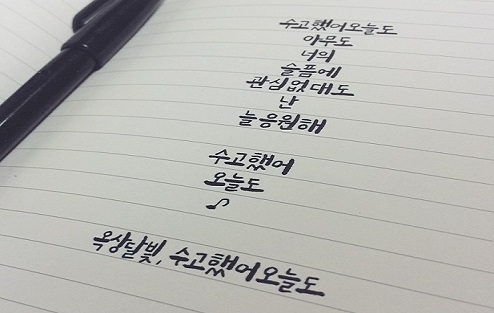 수고했어오늘도
아무도
너의
슬픔에
관심없대도
난
늘응원해
수고했어
오늘도
♪
옥상달빛, 수고했어오늘도